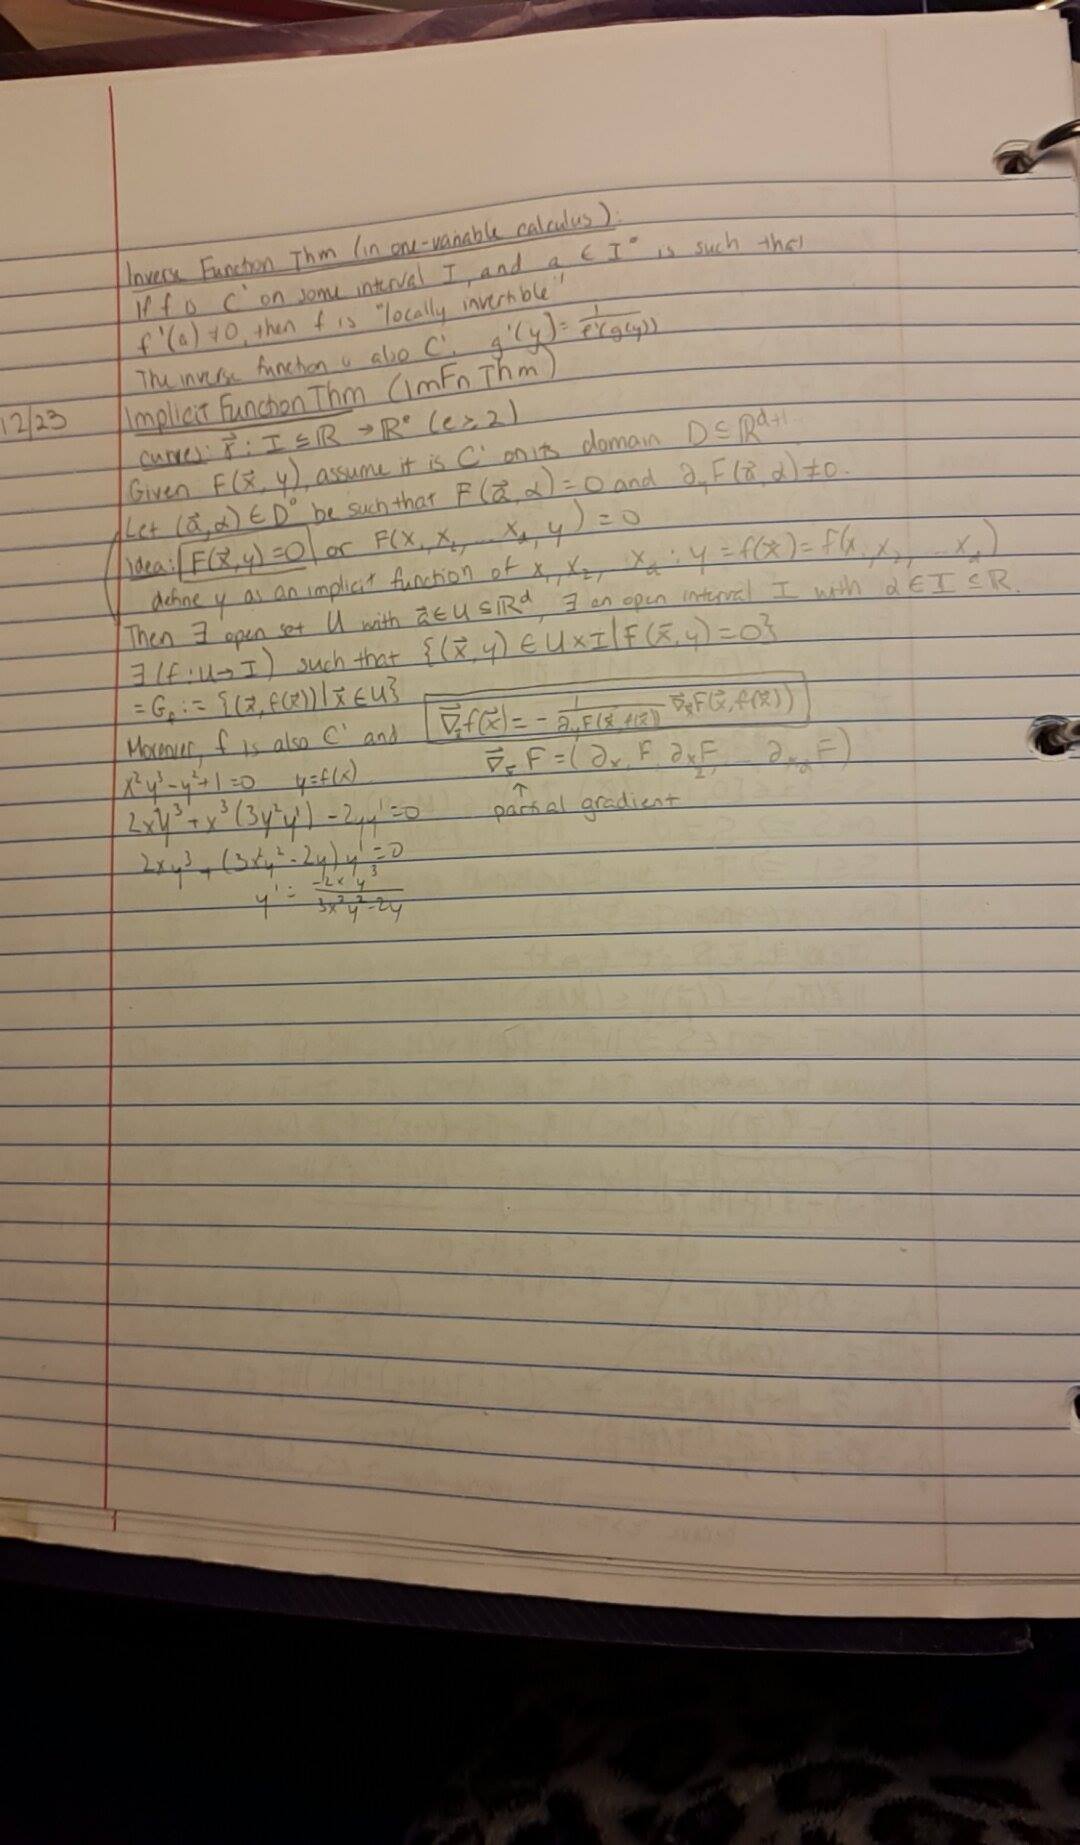 Inverse Function Thm (in one-variable calculus):
If f is C' on some interval I, and a ∈ I° is such that
f'(a) ≠ 0, then f is "locally invertible"
The inverse function is also C'. g'(y) = 1/f'(g(y))
12/23 Implicit Function Thm (ImFn Thm)
curves: r⃗ : I ⊆ ℝ → ℝᵉ (e ≥ 2)
Given F(x⃗, y), assume it is C' on its domain D ⊆ ℝ^{d+1}
Let (a⃗, α) ∈ D° be such that F(a⃗, α) = 0 and ∂_y F(a⃗, α) ≠ 0.
Idea: F(x⃗, y) = 0 or F(x₁, x₂, ... x_d, y) = 0
define y as an implicit function of x₁, x₂, x_d : y = f(x⃗) = f(x₁, x₂, ... x_d)
Then ∃ open set U with a⃗ ∈ U ⊆ ℝ^d, ∃ an open interval I with α ∈ I ⊆ ℝ.
∃ (f : U → I) such that {(x⃗, y) ∈ U × I | F(x⃗, y) = 0}
= G_f := {(x⃗, f(x⃗)) | x⃗ ∈ U}
Moreover, f is also C' and ∇⃗_x⃗ f(x⃗) = - 1/(∂_y F(x⃗, f(x⃗))) ∇⃗_x⃗ F(x⃗, f(x⃗))
x²y³ - y² + 1 = 0 y = f(x) ∇⃗_x⃗ F = (∂_{x₁} F, ∂_{x₂} F, ... ∂_{x_d} F)
2xy³ + x³(3y²y') - 2yy' = 0 ↑ partial gradient
2xy³ + (3x²y² - 2y) y' = 0
y' = -2xy³/(3x²y² - 2y)